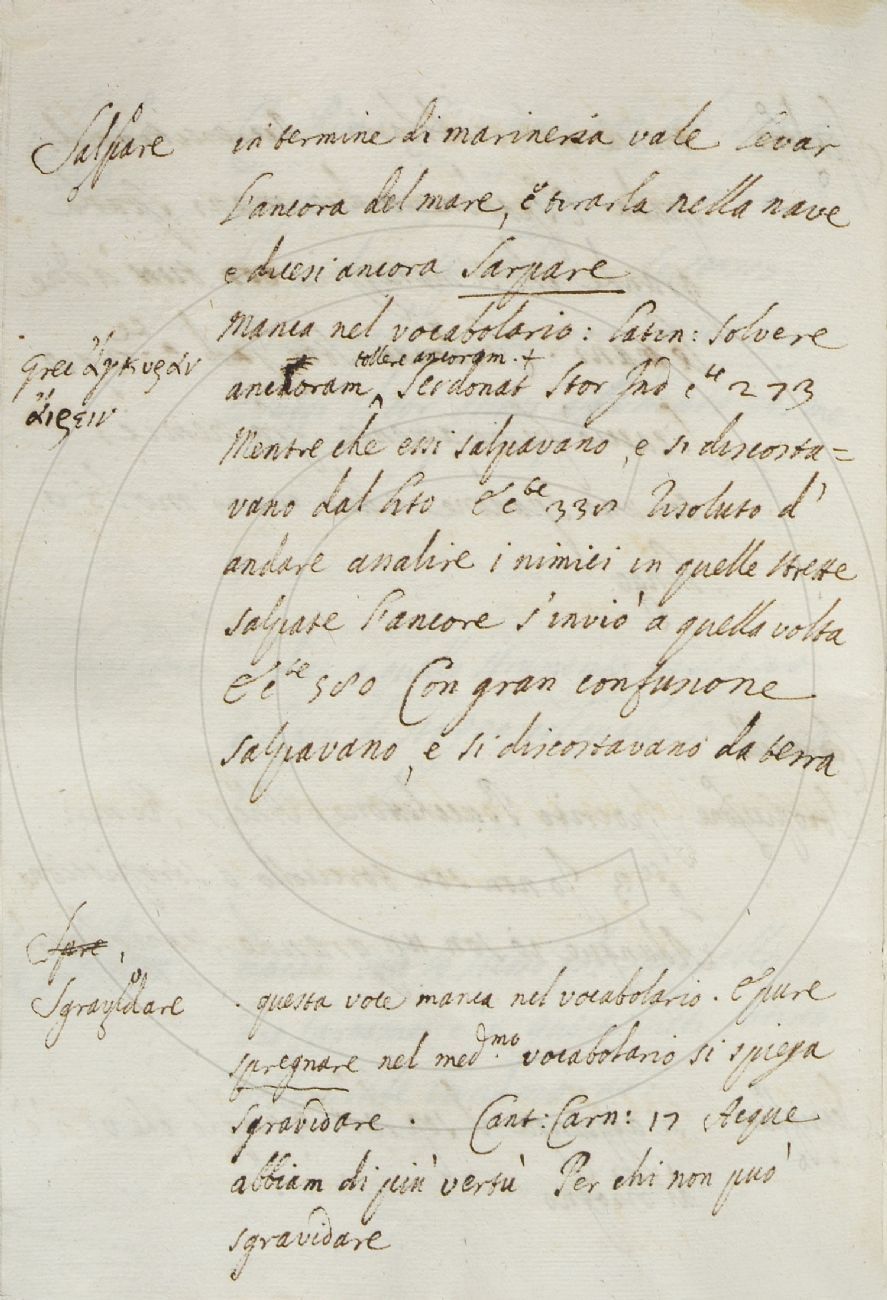 Salpare in termine di marineria vale levar
l'ancora del mare, e tirarla nella nave
e dicesi ancora Sarpare
Manca nel vocabolario: Latin: solvere
Grec ἄγκυραν
αἴρειν
tollere ancoram +
ancoram, Serdonat Stor Ind cte 273
Mentre che essi salpavano, e si discosta=
vano dal lito E cte 338 Risoluto d'
andare assalire i nimici in quelle strette
salpate l'ancore s'inviò a quella volta
E cte 580 Con gran confusione
salpavano, e si discostavano da terra
Spre
Sgravidare . questa voce manca nel vocabolario. E pure
spregnare nel medmo vocabolario si spiega
sgravidare . Cant: Carn: 17 Acque
abbiam di più vertù Per chi non può
sgravidare